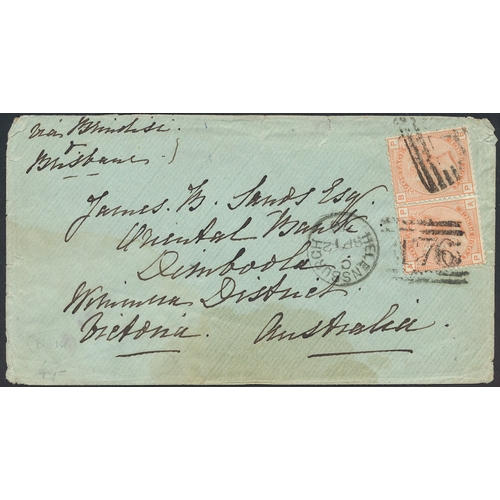 via Brindisi
&
Brisbane
James B. Sands Esq.
Oriental Bank
Dimboola
Wimmera District
Victoria. Australia.
HELENSBURGH
SP 12
176
P B
P A